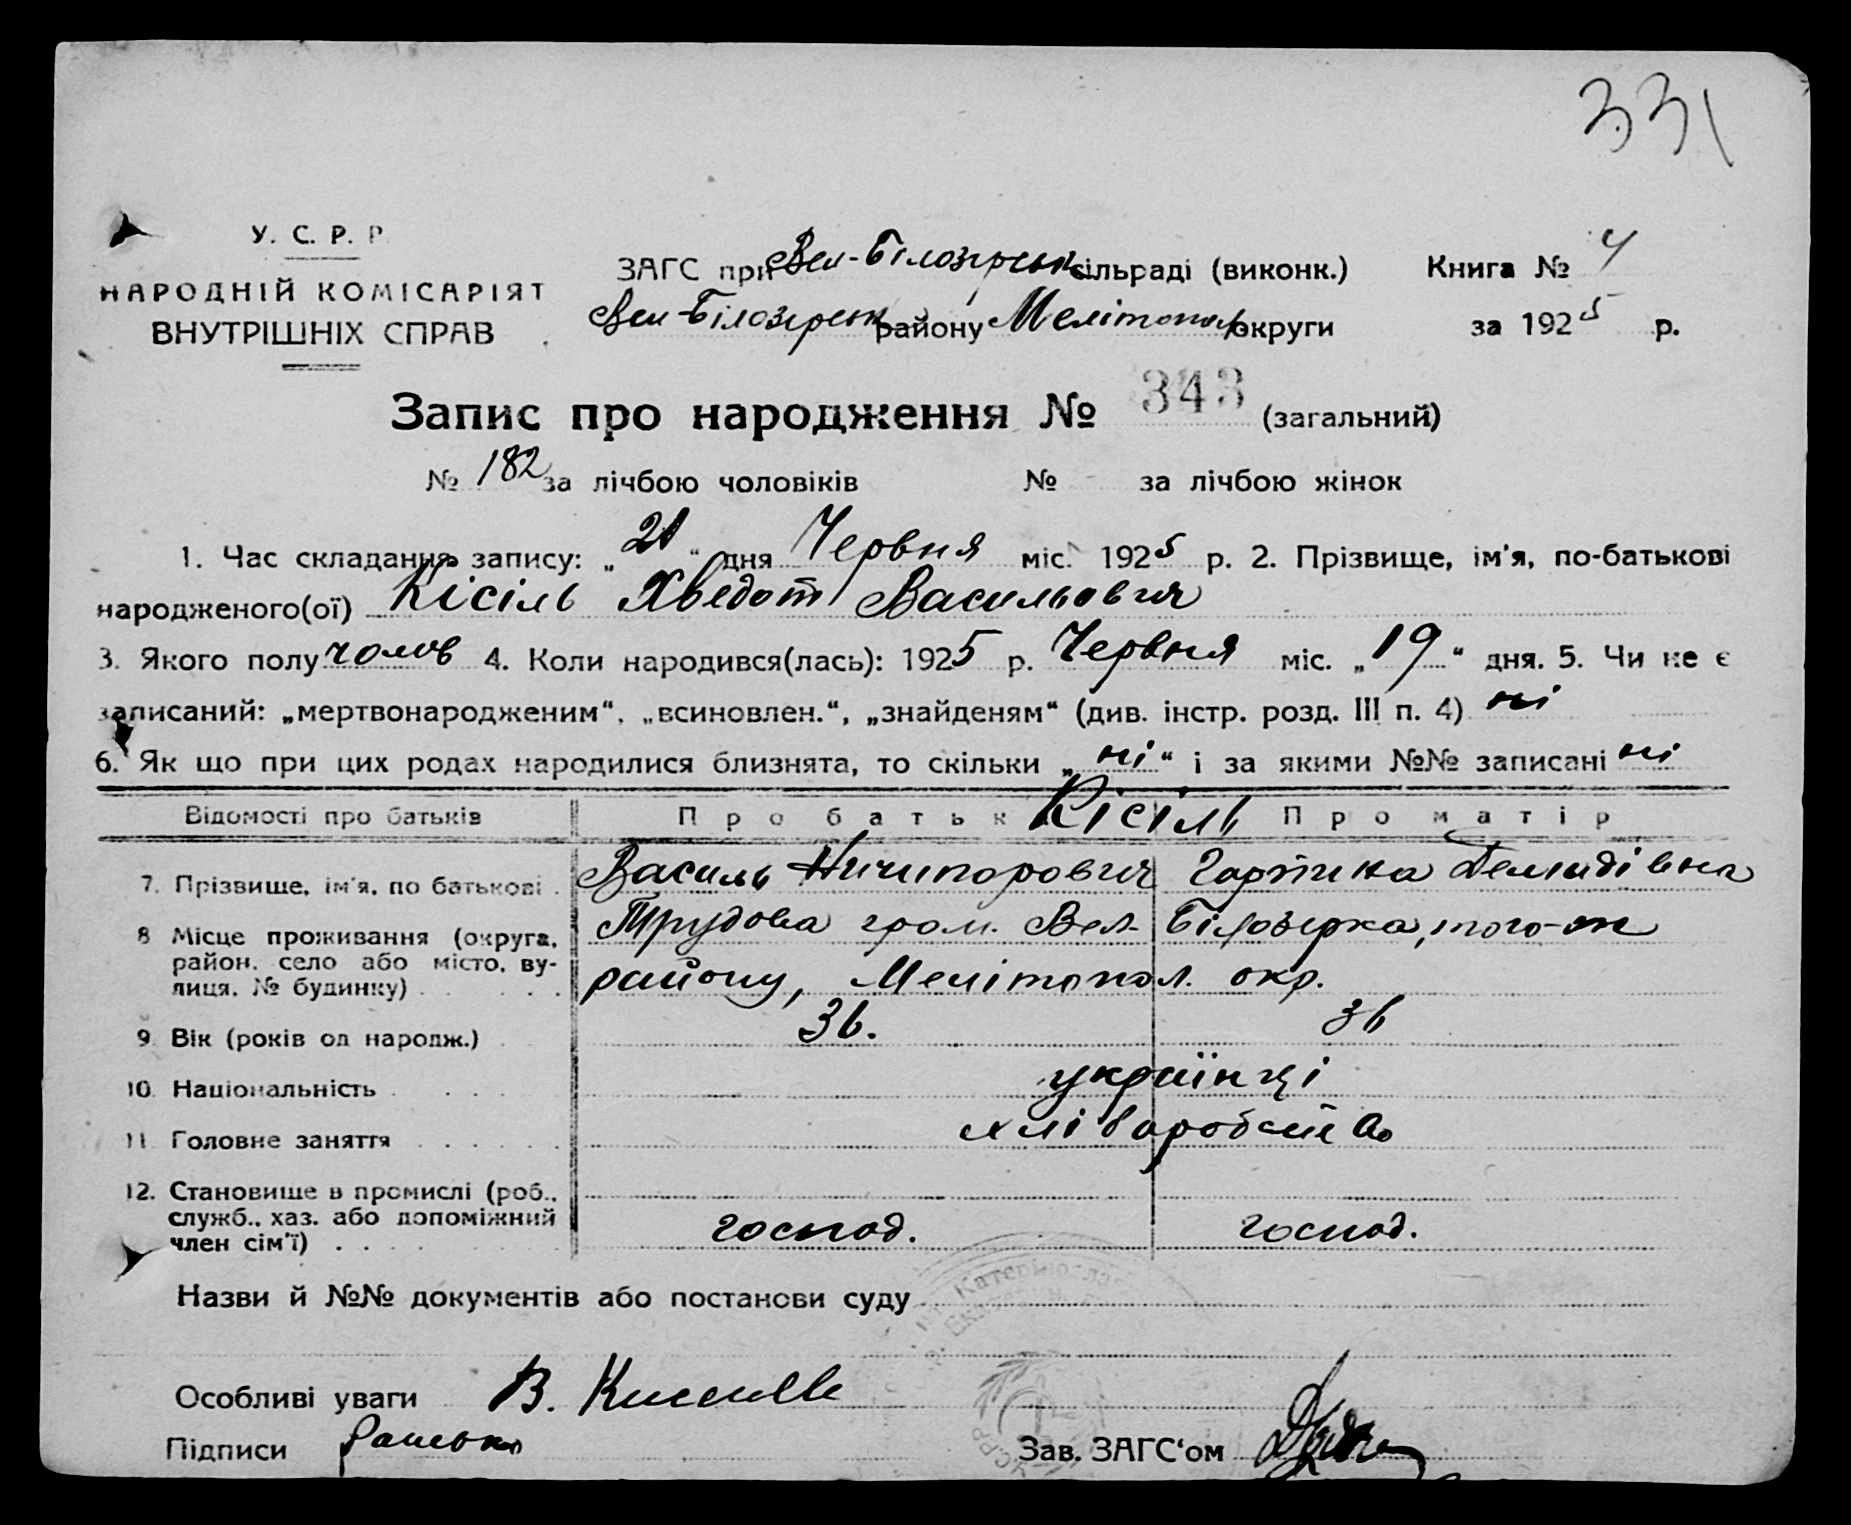 331
У. С. Р. Р.
НАРОДНІЙ КОМІСАРІЯТ
ВНУТРІШНІХ СПРАВ
ЗАГС при Вел-Білозерськ сільраді (виконк.) Книга № 4
Вел-Білозерськ району Мелітопол округи за 1925 р.
Запис про народження № 343 (загальний)
№ 182 за лічбою чоловіків № - за лічбою жінок
1. Час складання запису: „21“ дня Червня міс. 1925 р. 2. Прізвище, ім'я, по-батькові
народженого(ої) Кісіль Хведот Васильович
3. Якого полу чолов 4. Коли народився(лась): 1925 р. Червня міс. „19“ дня. 5. Чи не є
записаний: „мертвонародженим“, „всиновлен.“, „знайденям“ (див. інстр. розд. III п. 4) ні
6. Як що при цих родах народилися близнята, то скільки „ні“ і за якими №№ записані ні
Відомості про батьків Про батьк Кісіль Про матір
7. Прізвище, ім'я, по батькові . Василь Ничипорович Горпина Демидівна
8 Місце проживання (округа, район, село або місто, вулиця, № будинку) Трудова гром. Вел- Білозерка, того-ж
району, Мелітопол. окр.
9 Вік (років од народж.) 36. 36
10. Національність українці
11. Головне заняття хліборобство
12. Становище в промислі (роб.,
служб., хаз. або допоміжний
член сім'ї) господ. господ.
Назви й №№ документів або постанови суду
Особливі уваги В.
Підписи
Зав. ЗАГС'ом